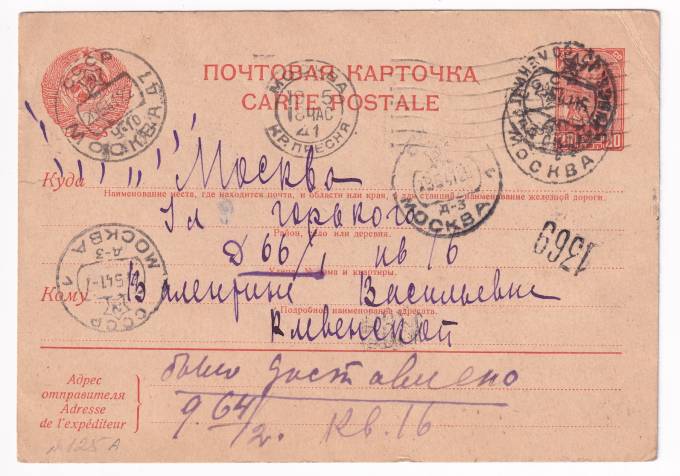 ПОЧТОВАЯ КАРТОЧКА
CARTE POSTALE
МОСКВА
18 ЧАС
41
КР. ПРЕСНЯ
МОСКВА
СССР
МОСКВА
Д-3
МОСКВА
Д-3
СССР
Куда
"Москва
Наименование места, где находится почта, и области или края, а для станций наименование железной дороги.
Ул горького
Район, село или деревня.
Д 66/1 кв 16
Улица, № дома и квартиры.
1369
Кому
Валентине Васильевне
Подробное наименование адресата.
Клевенской
Адрес
отправителя
Adresse
de l'expéditeur
было доставлено
9. 64/2. Кв. 16
№ 125 А